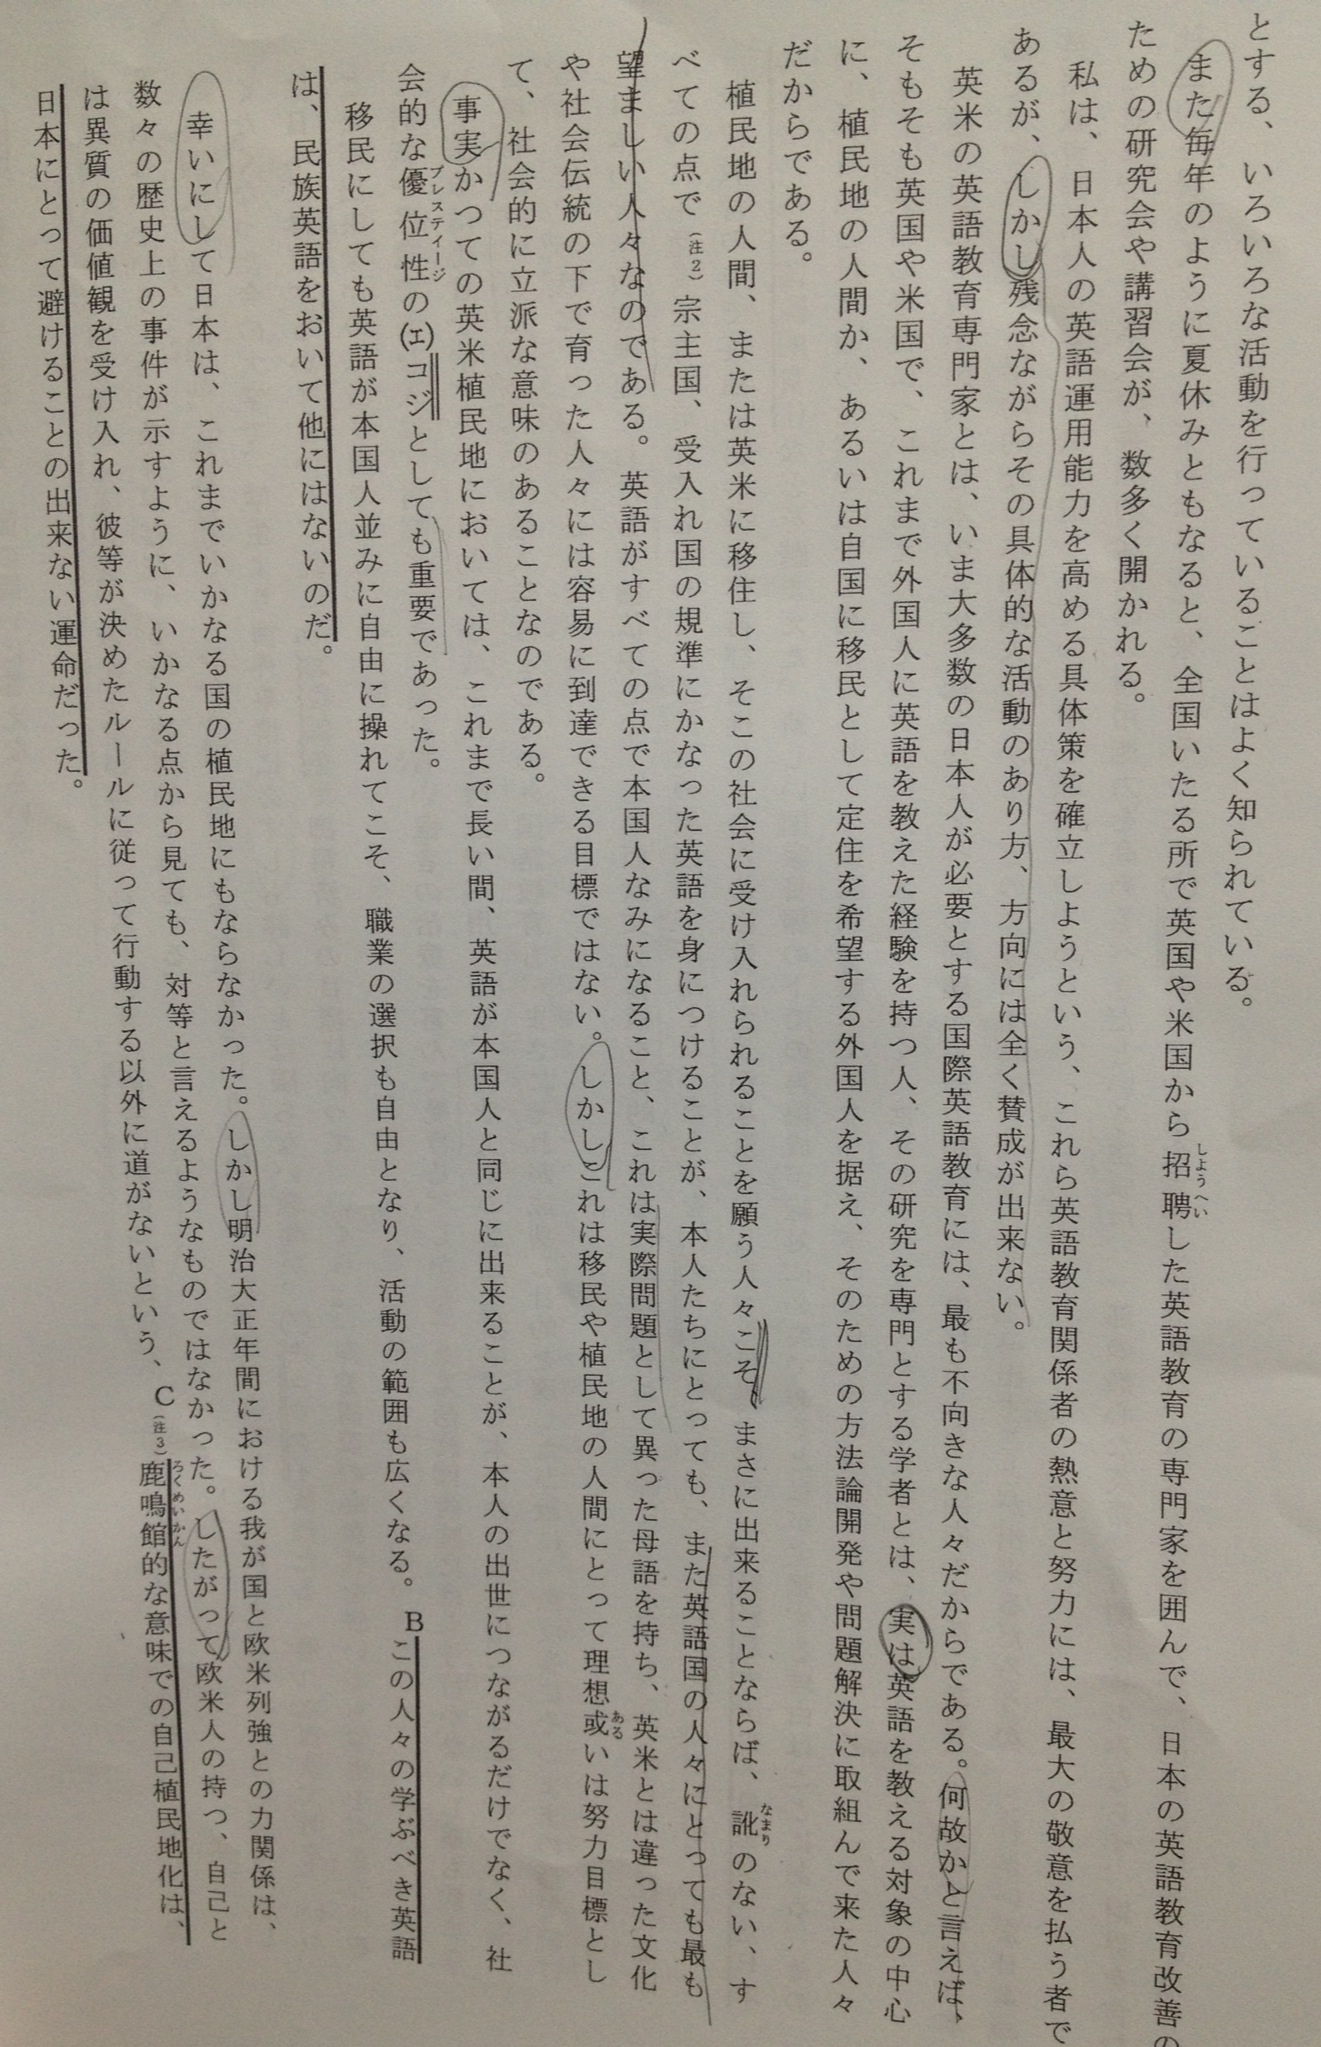 とする、いろいろな活動を行っていることはよく知られている。
また毎年のように夏休みともなると、全国いたる所で英国や米国から招聘した英語教育の専門家を囲んで、日本の英語教育改善の
しようへい
ための研究会や講習会が、数多く開かれる。
私は、日本人の英語運用能力を高める具体策を確立しようという、これら英語教育関係者の熱意と努力には、最大の敬意を払う者で
あるが、しかし残念ながらその具体的な活動のあり方、方向には全く賛成が出来ない。
英米の英語教育専門家とは、いま大多数の日本人が必要とする国際英語教育には、最も不向きな人々だからである。何故かと言えば、
そもそも英国や米国で、これまで外国人に英語を教えた経験を持つ人、その研究を専門とする学者とは、実は英語を教える対象の中心
に、植民地の人間か、あるいは自国に移民として定住を希望する外国人を据え、そのための方法論開発や問題解決に取組んで来た人々
だからである。
植民地の人間、または英米に移住し、そこの社会に受け入れられることを願う人々こそ、まさに出来ることならば、訛のない、す
なまり
べての点で（注2）宗主国、受入れ国の規準にかなった英語を身につけることが、本人たちにとっても、また英語国の人々にとっても最も
望ましい人々なのである。英語がすべての点で本国人なみになること、これは実際問題として異った母語を持ち、英米とは違った文化
や社会伝統の下で育った人々には容易に到達できる目標ではない。しかしこれは移民や植民地の人間にとって理想或いは努力目標とし
ある
て、社会的に立派な意味のあることなのである。
事実かつての英米植民地においては、これまで長い間、英語が本国人と同じに出来ることが、本人の出世につながるだけでなく、社
会的な優位性の(エ)コジとしても重要であった。
プレスティージ
移民にしても英語が本国人並みに自由に操れてこそ、職業の選択も自由となり、活動の範囲も広くなる。Bこの人々の学ぶべき英語
は、民族英語をおいて他にはないのだ。
幸いにして日本は、これまでいかなる国の植民地にもならなかった。しかし明治大正年間における我が国と欧米列強との力関係は、
数々の歴史上の事件が示すように、いかなる点から見ても、対等と言えるようなものではなかった。したがって欧米人の持つ、自己と
は異質の価値観を受け入れ、彼等が決めたルールに従って行動する以外に道がないという、C（注3）鹿鳴館的な意味での自己植民地化は、
ろくめいかん
日本にとって避けることの出来ない運命だった。